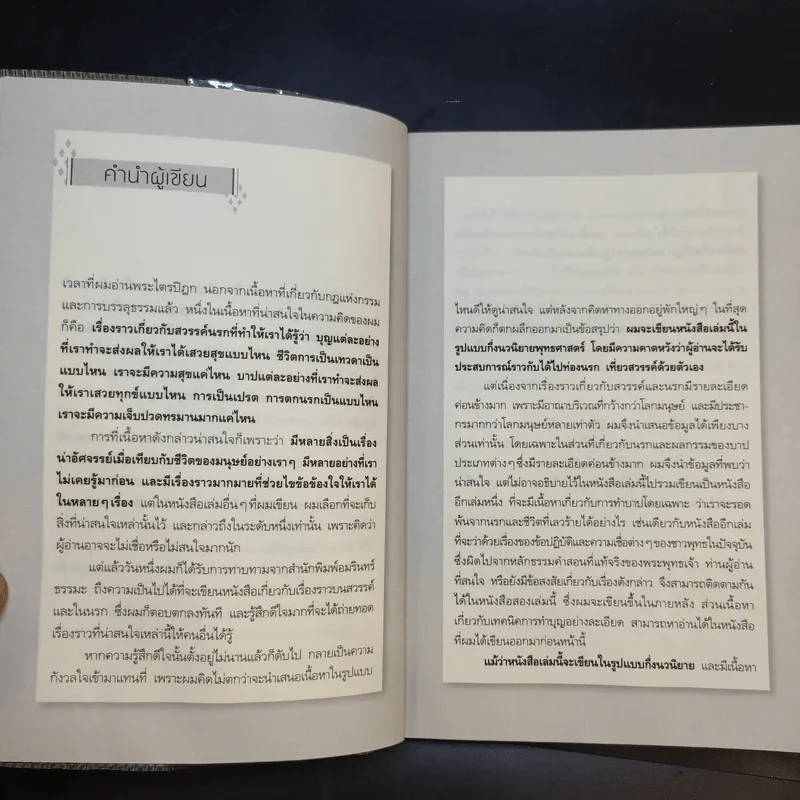 คำนำผู้เขียน
เวลาที่ผมอ่านพระไตรปิฎก นอกจากเนื้อหาที่เกี่ยวกับกฎแห่งกรรม
และการบรรลุธรรมแล้ว หนึ่งในเนื้อหาที่น่าสนใจในความคิดของผม
ก็คือ เรื่องราวเกี่ยวกับสวรรค์นรกที่ทำให้เราได้รู้ว่า บุญแต่ละอย่าง
ที่เราทำจะส่งผลให้เราได้เสวยสุขแบบไหน ชีวิตการเป็นเทวดาเป็น
แบบไหน เราจะมีความสุขแค่ไหน บาปแต่ละอย่างที่เราทำจะส่งผล
ให้เราเสวยทุกข์แบบไหน การเป็นเปรต การตกนรกเป็นแบบไหน
เราจะมีความเจ็บปวดทรมานมากแค่ไหน
การที่เนื้อหาดังกล่าวน่าสนใจก็เพราะว่า มีหลายสิ่งเป็นเรื่อง
น่าอัศจรรย์เมื่อเทียบกับชีวิตของมนุษย์อย่างเราๆ มีหลายอย่างที่เรา
ไม่เคยรู้มาก่อน และมีเรื่องราวมากมายที่ช่วยไขข้อข้องใจให้เราได้
ในหลายๆ เรื่อง แต่ในหนังสือเล่มอื่นๆ ที่ผมเขียน ผมเลือกที่จะเก็บ
สิ่งที่น่าสนใจเหล่านั้นไว้ และกล่าวถึงในระดับหนึ่งเท่านั้น เพราะคิดว่า
ผู้อ่านอาจจะไม่เชื่อหรือไม่สนใจมากนัก
แต่แล้ววันหนึ่งผมก็ได้รับการทาบทามจากสำนักพิมพ์อมรินทร์
ธรรมะ ถึงความเป็นไปได้ที่จะเขียนหนังสือเกี่ยวกับเรื่องราวบนสวรรค์
และในนรก ซึ่งผมก็ตอบตกลงทันที และรู้สึกดีใจมากที่จะได้ถ่ายทอด
เรื่องราวที่น่าสนใจเหล่านี้ให้คนอื่นได้รู้
หากความรู้สึกดีใจนั้นตั้งอยู่ไม่นานแล้วก็ดับไป กลายเป็นความ
กังวลใจเข้ามาแทนที่ เพราะผมคิดไม่ตกว่าจะนำเสนอเนื้อหาในรูปแบบ
ไหนดีให้ดูน่าสนใจ แต่หลังจากคิดหาทางออกอยู่พักใหญ่ๆ ในที่สุด
ความคิดก็ตกผลึกออกมาเป็นข้อสรุปว่า ผมจะเขียนหนังสือเล่มนี้ใน
รูปแบบกึ่งนวนิยายพุทธศาสตร์ โดยมีความคาดหวังว่าผู้อ่านจะได้รับ
ประสบการณ์ราวกับได้ไปท่องนรก เที่ยวสวรรค์ด้วยตัวเอง
แต่เนื่องจากเรื่องราวเกี่ยวกับสวรรค์และนรกมีรายละเอียด
ค่อนข้างมาก เพราะมีอาณาบริเวณที่กว้างกว่าโลกมนุษย์ และมีประชา-
กรมากกว่าโลกมนุษย์หลายเท่าตัว ผมจึงนำเสนอข้อมูลได้เพียงบาง
ส่วนเท่านั้น โดยเฉพาะในส่วนที่เกี่ยวกับนรกและผลกรรมของบาป
ประเภทต่างๆ ซึ่งมีรายละเอียดค่อนข้างมาก ผมจึงนำข้อมูลที่พบว่า
น่าสนใจ แต่ไม่อาจอธิบายไว้ในหนังสือเล่มนี้ไปรวมเขียนเป็นหนังสือ
อีกเล่มหนึ่ง ที่จะมีเนื้อหาเกี่ยวกับการทำบาปโดยเฉพาะ ว่าเราจะรอด
พ้นจากนรกและชีวิตที่เลวร้ายได้อย่างไร เช่นเดียวกับหนังสืออีกเล่ม
ที่จะว่าด้วยเรื่องของข้อปฏิบัติและความเชื่อต่างๆ ของชาวพุทธในปัจจุบัน
ซึ่งผิดไปจากหลักธรรมคำสอนที่แท้จริงของพระพุทธเจ้า ท่านผู้อ่าน
ที่สนใจ หรือยังมีข้อสงสัยเกี่ยวกับเรื่องดังกล่าว จึงสามารถติดตามกัน
ได้ในหนังสือสองเล่มนี้ ซึ่งผมจะเขียนขึ้นในภายหลัง ส่วนเนื้อหา
เกี่ยวกับเทคนิคการทำบุญอย่างละเอียด สามารถหาอ่านได้ในหนังสือ
ที่ผมได้เขียนออกมาก่อนหน้านี้
แม้ว่าหนังสือเล่มนี้จะเขียนในรูปแบบกึ่งนวนิยาย และมีเนื้อหา